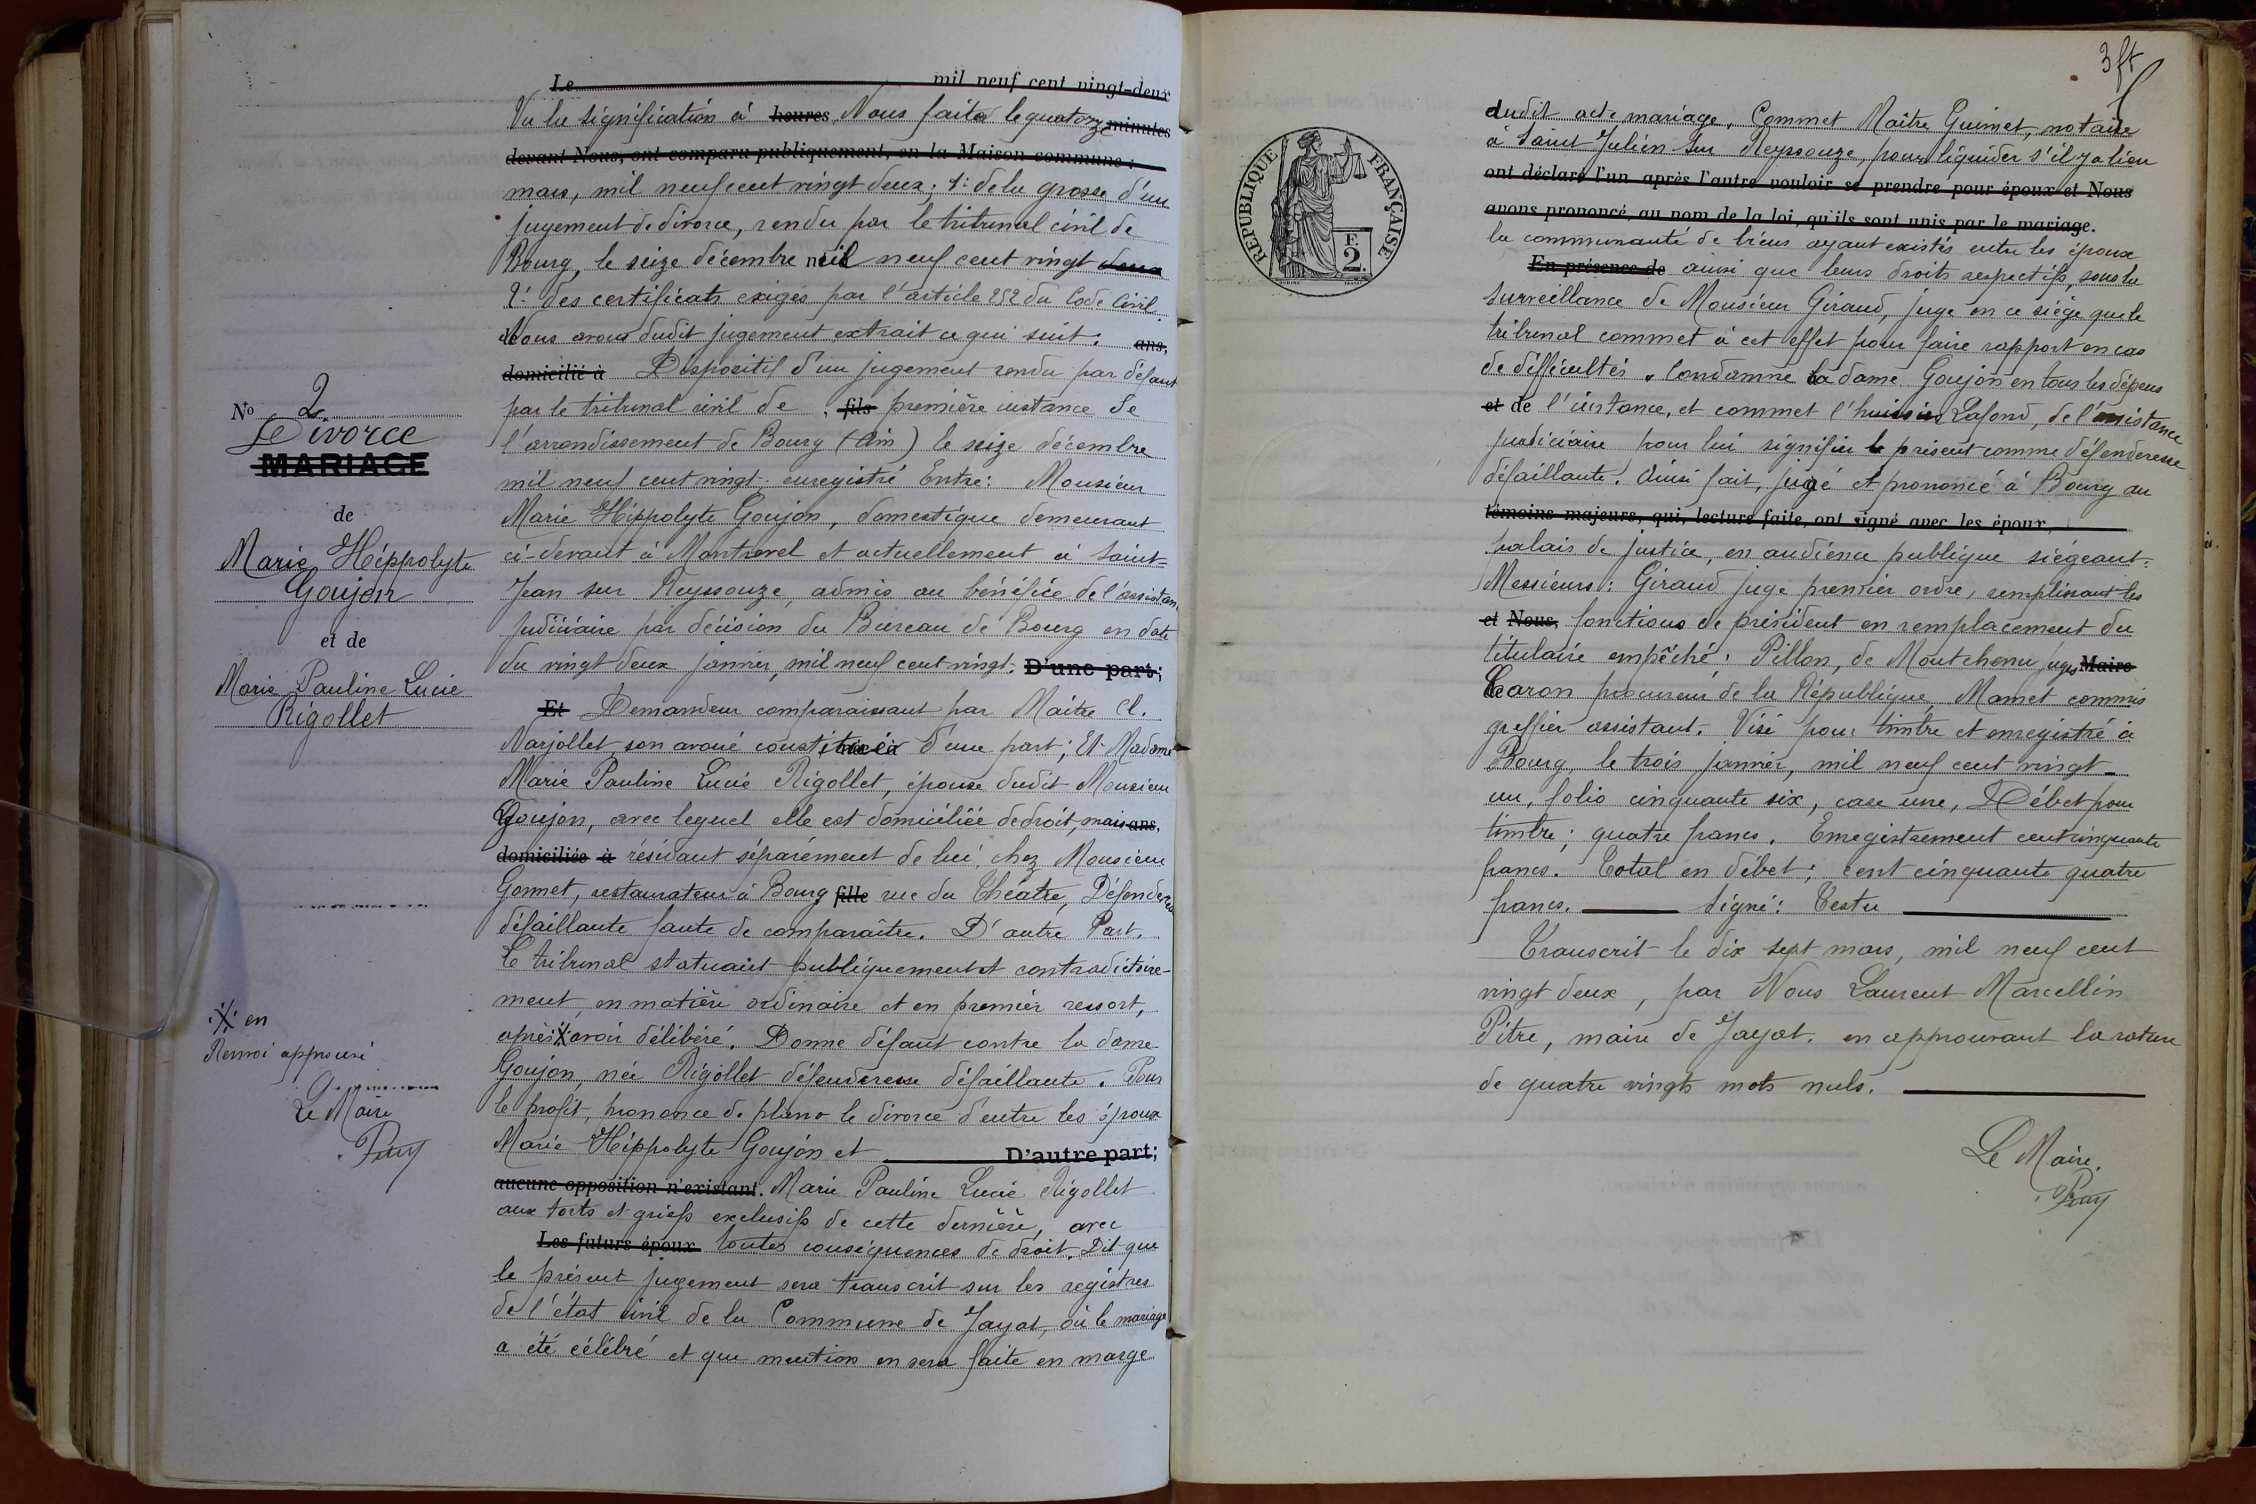 Le mil neuf cent vingt-deux
Vu la signification à heures Nous faite le quatorze minutes
devant Nous, ont comparu publiquement, en la Maison commune :
mars, mil neuf cent vingt deux; 1º de la grosse d'un
jugement de divorce, rendu par le tribunal civil de
Bourg, le seize décembre mil neuf cent vingt deux
2º des certificats exigés par l'article 252 du Code Civil.
Nous avons dudit jugement extrait ce qui suit : ans,
domicilié à Dispositif d'un jugement rendu par défaut
par le tribunal civil de , fils première instance de
l'arrondissement de Bourg (Ain) le seize décembre
mil neuf cent vingt. enregistré Entre : Monsieur
Marie Hippolyte Goujon, domestique demeurant
ci-devant à Montrevel et actuellement à Saint-
Jean sur Reyssouze, admis au bénéfice de l'assistance
judiciaire par décision du Bureau de Bourg en date
du vingt deux janvier, mil neuf cent vingt. D'une part;
Et Demandeur comparaissant par Maître Cl.
Narjollet son avoué constitué d'une part; Et Madame
Marie Pauline Lucie Rigollet, épouse dudit Monsieur
Goujon, avec lequel elle est domiciliée de droit, mais ans,
domiciliée à résidant séparément de lui, chez Monsieur
Gonnet, restaurateur à Bourg fille rue du Théâtre, Défenderesse
défaillante faute de comparaître. D'autre Part.
Le tribunal statuant publiquement et contradictoire-
ment, en matière ordinaire et en premier ressort,
après X avoir délibéré. Donne défaut contre la dame
Goujon, née Rigollet défenderesse défaillante. Pour
le profit, prononce de plano le divorce d'entre les époux
Marie Hippolyte Goujon et D'autre part;
aucune opposition n'existant. Marie Pauline Lucie Rigollet
aux torts et griefs exclusifs de cette dernière, avec
Les futurs époux toutes conséquences de droit. Dit que
le présent jugement sera transcrit sur les registres
de l'état civil de la Commune de Jayat, où le mariage
a été célébré et que mention en sera faite en marge
No 2
Divorce
MARIAGE
de
Marie Hippolyte
Goujon
et de
Marie Pauline Lucie
Rigollet
X en
Renvoi approuvé
Le Maire
3 ft
RÉPUBLIQUE FRANÇAISE
F.
2.
dudit acte mariage. Commet Maître Guimet, notaire
à Saint Julien sur Reyssouze, pour liquider s'il y a lieu
ont déclaré l'un après l'autre vouloir se prendre pour époux et Nous
avons prononcé, au nom de la loi, qu'ils sont unis par le mariage.
la communauté de biens ayant existés entre les époux
En présence de ainsi que leurs droits respectifs, sous la
surveillance de Monsieur Giraud, juge en ce siège que le
tribunal commet à cet effet pour faire rapport en cas
de difficultés. Condamne la dame Goujon en tous les dépens
et de l'instance, et commet l'huissier Lafond, de l'assistance
judiciaire pour lui signifier le présent comme défenderesse
défaillante. Ainsi fait, jugé et prononcé à Bourg au
témoins majeurs, qui, lecture faite, ont signé avec les époux,
palais de justice, en audience publique siégeant :
Messieurs : Giraud juge premier ordre, remplissant les
et Nous, fonctions de président en remplacement du
titulaire empêché; Pillon, de Montchenu juges Maire
Caron procureur de la République, Mamet commis
greffier assistant. Visé pour timbre et enregistré à
Bourg, le trois janvier, mil neuf cent vingt-
un, folio cinquante six, case une, Débet pour
timbre; quatre francs. Enregistrement cent cinquante
francs. Total en débet; cent cinquante quatre
francs. Signé : Testu
Transcrit le dix sept mars, mil neuf cent
vingt deux, par Nous Laurent Marcellin
Pitre, maire de Jayat. en approuvant la rature
de quatre vingts mots nuls.
Le Maire.